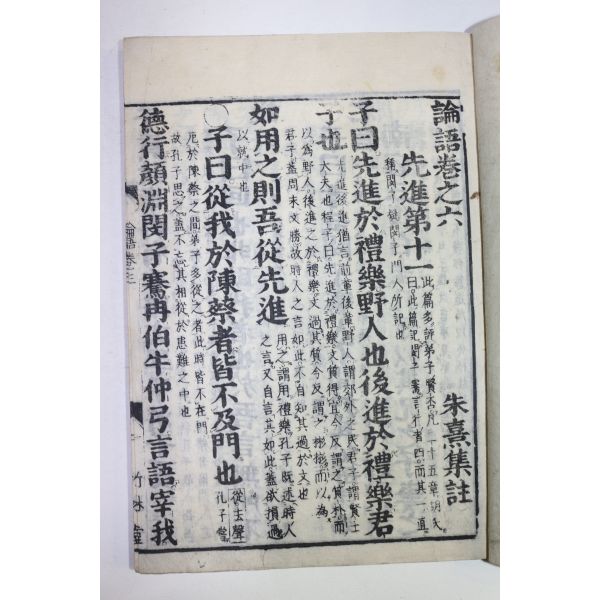 論語卷之六
朱熹集註
先進第十一
此篇多評弟子賢否凡二十五章胡氏
曰此篇記閔子騫言行者四而其一直
稱閔子疑閔子門人所記也
子曰先進於禮樂野人也後進於禮樂君
子也
先進後進猶言前輩後輩野人謂郊外之民君子謂賢士
大夫也程子曰先進於禮樂文質得宜今反謂之質朴而
以爲野人後進之於禮樂文過其質今反謂之彬彬而以爲
君子蓋周末文勝故時人之言如此不自知其過於文也
如用之則吾從先進
用之謂用禮樂孔子旣述時人
之言又自言其如此蓋欲損過
以就中也
○子曰從我於陳蔡者皆不及門也
從去聲
孔子嘗
厄於陳蔡之間弟子多從之者此時皆不在門
故孔子思之蓋不忘其相從於患難之中也
德行顏淵閔子騫冉伯牛仲弓言語宰我
論語卷之六